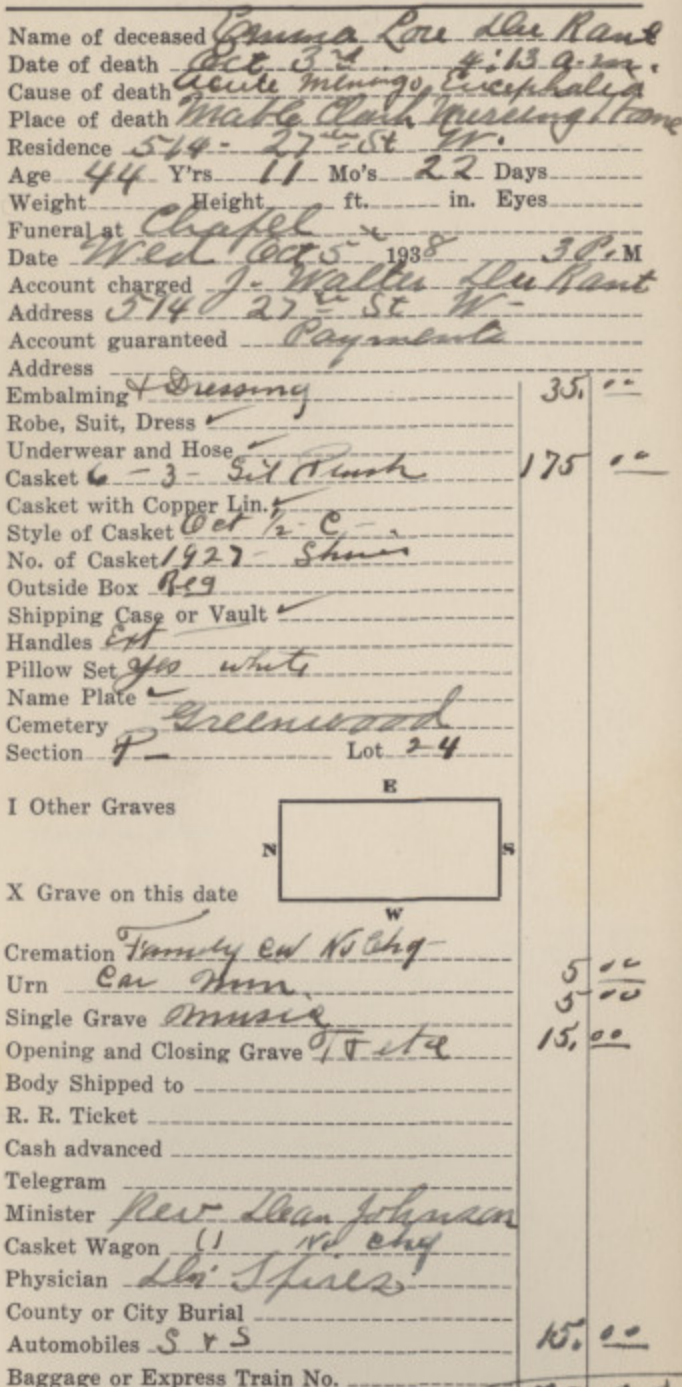 Name of deceased Emma Lou Du Rant
Date of death Oct 3rd 4:13 a.m.
Cause of death acute meningo, Encephalia
Place of death Mable Clark Nursing Home
Residence 514 - 27th St W.
Age 44 Y'rs 11 Mo's 22 Days
Weight Height ft. in. Eyes
Funeral at Chapel
Date Wed Oct 5th 1938 3 P. M
Account charged J. Walter Du Rant
Address 514 27th St W-
Account guaranteed Payments
Address
Embalming & Dressing 35. 00
Robe, Suit, Dress ✓
Underwear and Hose ✓
Casket 6 - 3 - Sil Plush 175 00
Casket with Copper Lin. ✓
Style of Casket Oct 1/2 - C -
No. of Casket 1927 -
Outside Box Reg
Shipping Case or Vault ✓
Handles Ext
Pillow Set yes white
Name Plate ✓
Cemetery Greenwood
Section Lot 24
E
I Other Graves
N S
X Grave on this date
W
Cremation Family Car No Chg -
Urn Car Min. 5 00
Single Grave Music 5 00
Opening and Closing Grave 15. 00
Body Shipped to
R. R. Ticket
Cash advanced
Telegram
Minister Rev Dean Johnson
Casket Wagon 11 No. Chg
Physician Dr. Spires
County or City Burial
Automobiles S & S 15. 00
Baggage or Express Train No.